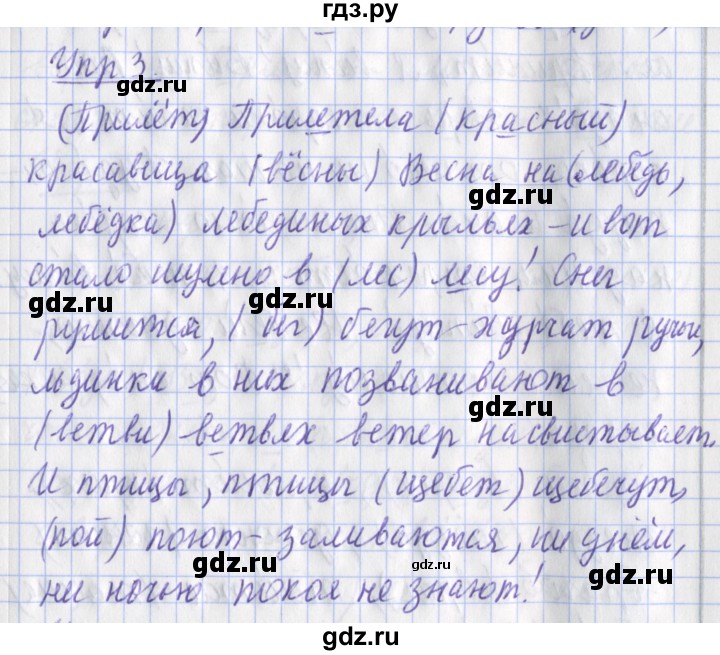 гдз.ру
Упр 3.
gdz.ru
(Прилёт) Прилетела (красный)
красавица (вёсны) Весна на (лебедь,
gdz.ru
лебёдка) лебединых крыльях – и вот
стало шумно в (лес) лесу! Снег
gdz.ru gdz.ru
рушится, ( бег) бегут – журчат ручьи,
льдинки в них позванивают в
gdz.ru
(ветви) ветвях ветер насвистывает.
И птицы, птицы (щебет) щебечут,
(пой) поют – заливаются, ни днём,
gdz.ru gdz.ru
ни ночью покоя не знают!
gdz.ru